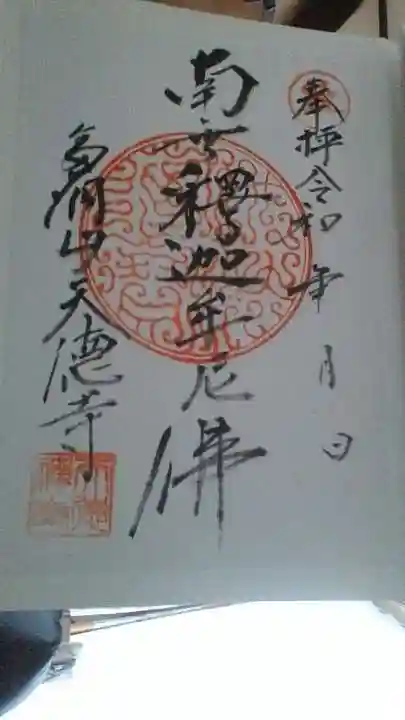 奉拝令和 年 月 日
南無釋迦牟尼佛
山天德寺